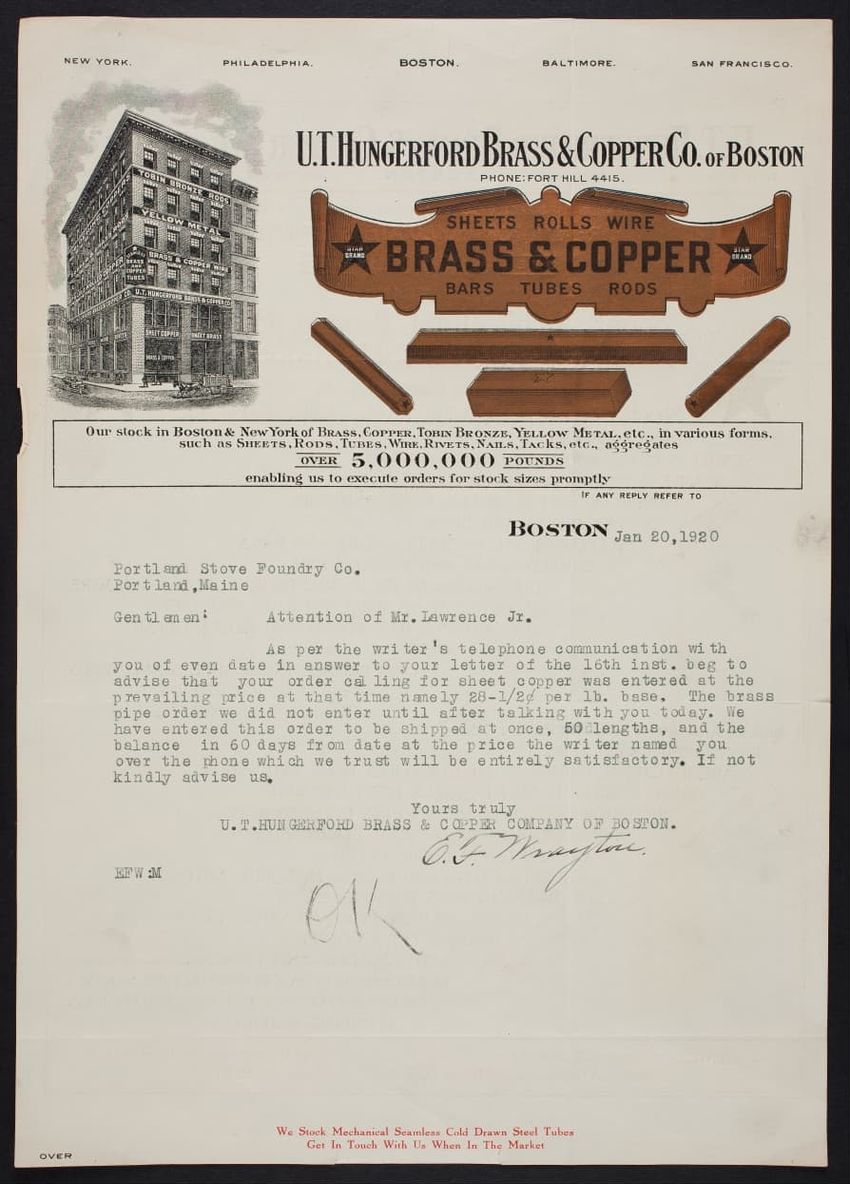 NEW YORK. PHILADELPHIA. BOSTON. BALTIMORE. SAN FRANCISCO.
U.T. HUNGERFORD BRASS & COPPER CO. OF BOSTON
PHONE: FORT HILL 4415.
TOBIN BRONZE RODS
YELLOW METAL
BRASS & COPPER WIRE
BRASS AND COPPER TUBES
U.T. HUNGERFORD BRASS & COPPER CO.
SHEET COPPER SHEET BRASS
SHEETS ROLLS WIRE
STAR BRAND BRASS & COPPER STAR BRAND
BARS TUBES RODS
Our stock in Boston & New York of BRASS, COPPER, TOBIN BRONZE, YELLOW METAL, etc., in various forms,
such as SHEETS, RODS, TUBES, WIRE, RIVETS, NAILS, TACKS, etc., aggregates
OVER 5,000,000 POUNDS
enabling us to execute orders for stock sizes promptly
IF ANY REPLY REFER TO
BOSTON Jan 20,1920
Portland Stove Foundry Co.
Portland,Maine
Gentlemen: Attention of Mr.Lawrence Jr.
As per the writer's telephone communication with
you of even date in answer to your letter of the 16th inst. beg to
advise that your order calling for sheet copper was entered at the
prevailing price at that time namely 28-1/2¢ per lb. base. The brass
pipe order we did not enter until after talking with you today. We
have entered this order to be shipped at once, 50 lengths, and the
balance in 60 days from date at the price the writer named you
over the phone which we trust will be entirely satisfactory. If not
kindly advise us.
Yours truly
U.T.HUNGERFORD BRASS & COPPER COMPANY OF BOSTON.
E.F. Wrayton.
EFW:M
OK
We Stock Mechanical Seamless Cold Drawn Steel Tubes
Get In Touch With Us When In The Market
OVER